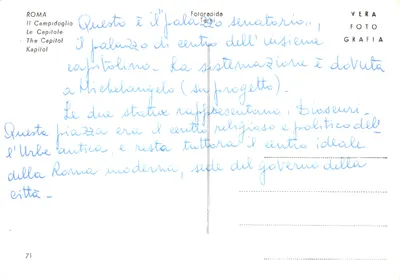 ROMA
Il Campidoglio
Le Capitole
The Capitol
Kapitol
Fotorapida
VERA
FOTO
GRAFIA
Questo è il palazzo senatorio,
il palazzo di centro dell'insieme
capitolino. La sistemazione è dovuta
a Michelangelo (su progetto).
Le due statue rappresentano i Dioscuri.
Questa piazza era il centro religioso e politico dell'
l'Urbe antica, e resta tuttora il centro ideale
della Roma moderna, sede del governo della
città.
71